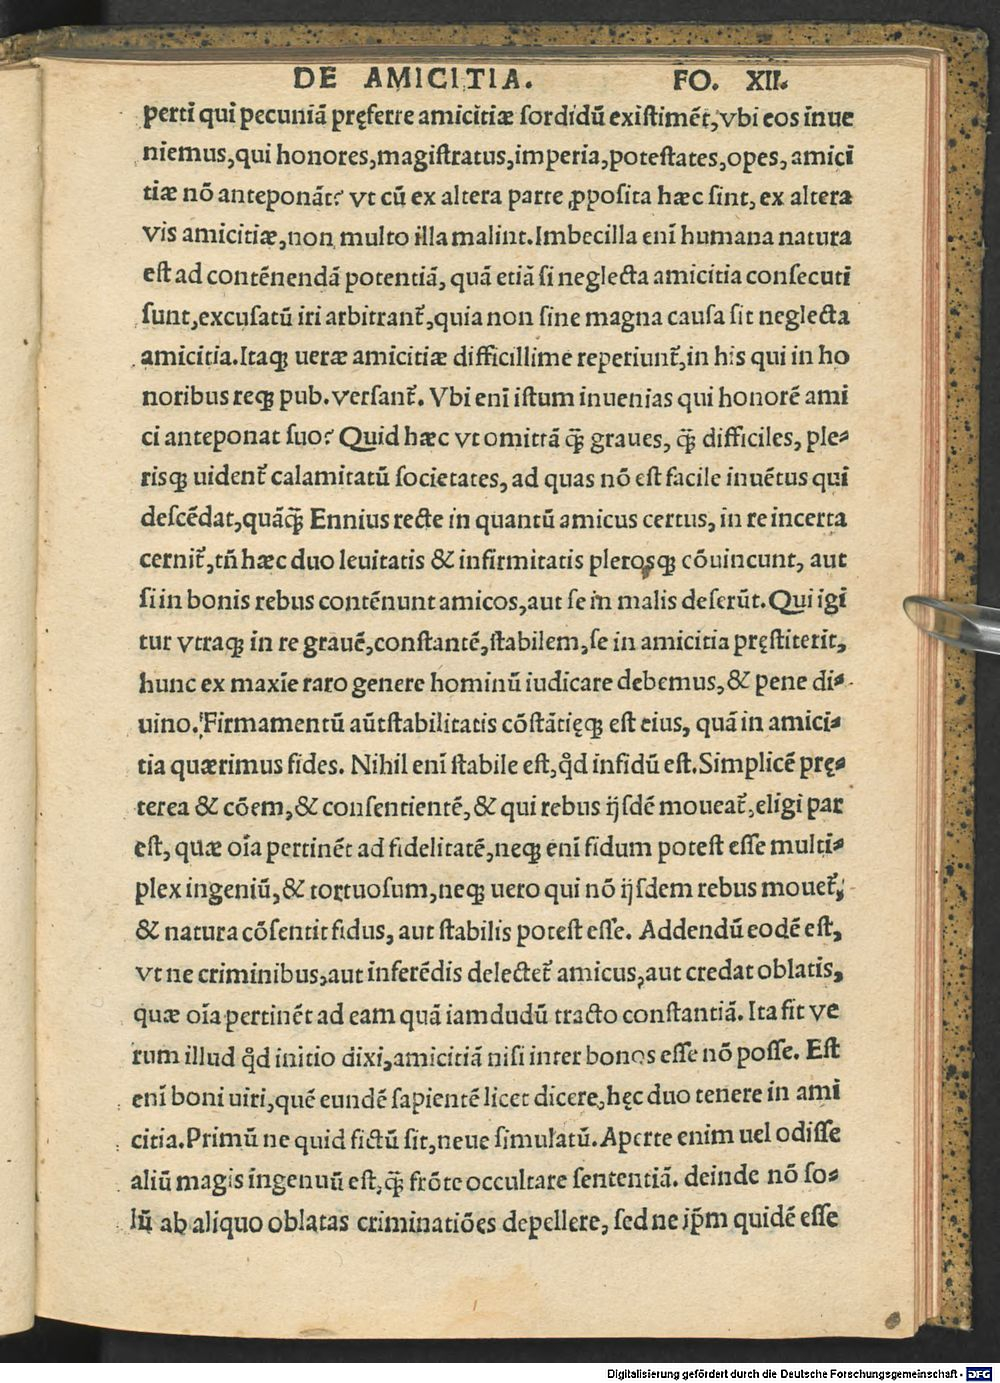 DE AMICITIA. FO. XII.
perti qui pecuniã pręferre amicitiæ ſordidũ exiſtimẽt, vbi eos inue
niemus, qui honores, magiſtratus, imperia, poteſtates, opes, amici
tiæ nõ anteponãt? vt cũ ex altera parte ꝓpoſita hæc ſint, ex altera
vis amicitiæ, non multo illa malint. Imbecilla enĩ humana natura
eſt ad contẽnendã potentiã, quã etiã ſi neglecta amicitia conſecuti
ſunt, excuſatũ iri arbitrant᷑, quia non ſine magna cauſa ſit neglecta
amicitia. Itaqꝫ ueræ amicitiæ difficillime reperiunt᷑, in his qui in ho
noribus reqꝫ pub. verſant᷑. Vbi enĩ iſtum inuenias qui honorẽ ami
ci anteponat ſuo? Quid hæc vt omittã qꝫ̃ graues, qꝫ̃ difficiles, ple⸗
risqꝫ uident᷑ calamitatũ ſocietates, ad quas nõ eſt facile inuẽtus qui
deſcẽdat, quãqꝫ̃ Ennius recte in quantũ amicus certus, in re incerta
cernit᷑, tñ hæc duo leuitatis & infirmitatis plerosqꝫ cõuincunt, aut
ſi in bonis rebus contẽnunt amicos, aut ſe in malis deſerũt. Qui igi
tur vtraqꝫ in re grauẽ, conſtantẽ, ſtabilem, ſe in amicitia pręſtiterit,
hunc ex maxĩe raro genere hominũ iudicare debemus, & pene di⸗
uino. Firmamentũ aũt ſtabilitatis cõſtãtięqꝫ eſt eius, quã in amici⸗
tia quærimus fides. Nihil enĩ ſtabile eſt, qd̉ infidũ eſt. Simplicẽ prę⸗
terea & cõem, & conſentientẽ, & qui rebus ijſdẽ moueat᷑, eligi par
eſt, quæ oĩa pertinẽt ad fidelitatẽ, neqꝫ enĩ fidum poteſt eſſe multi⸗
plex ingeniũ, & tortuoſum, neqꝫ uero qui nõ ijſdem rebus mouet᷑,
& natura cõſentit fidus, aut ſtabilis poteſt eſſe. Addendũ eodẽ eſt,
vt ne criminibus, aut inferẽdis delectet᷑ amicus, aut credat oblatis,
quæ oĩa pertinẽt ad eam quã iamdudũ tracto conſtantiã. Ita fit ve
rum illud qd̉ initio dixi, amicitiã niſi inter bonos eſſe nõ poſſe. Eſt
enĩ boni uiri, quẽ eundẽ ſapientẽ licet dicere, hęc duo tenere in ami
citia. Primũ ne quid fictũ ſit, neue ſimulatũ. Aperte enim uel odiſſe
aliũ magis ingenuũ eſt, qꝫ̃ frõte occultare ſententiã. deinde nõ ſo⸗
lũ ab aliquo oblatas criminatiões depellere, ſed ne ip̃m quidẽ eſſe
Digitalisierung gefördert durch die Deutsche Forschungsgemeinschaft - DFG